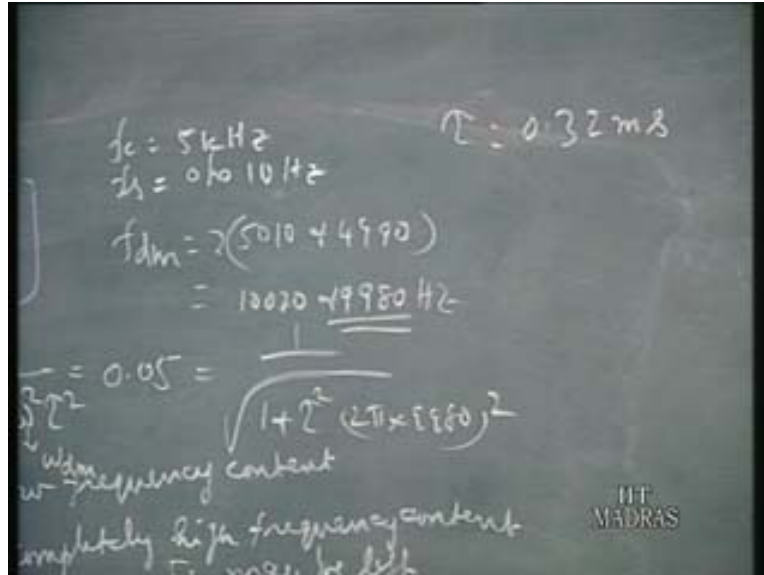 fc = 5kHz
τ = 0.32 ms
fs = 0 to 10 Hz
fdm = 2(5010 & 4990)
= 10020 & 9980 Hz
1
= 0.05 =
√ 1 + τ² (2π × 9980)²
ω²τ²
ωdm
frequency content
completely high frequency content
may be
IIT
MADRAS